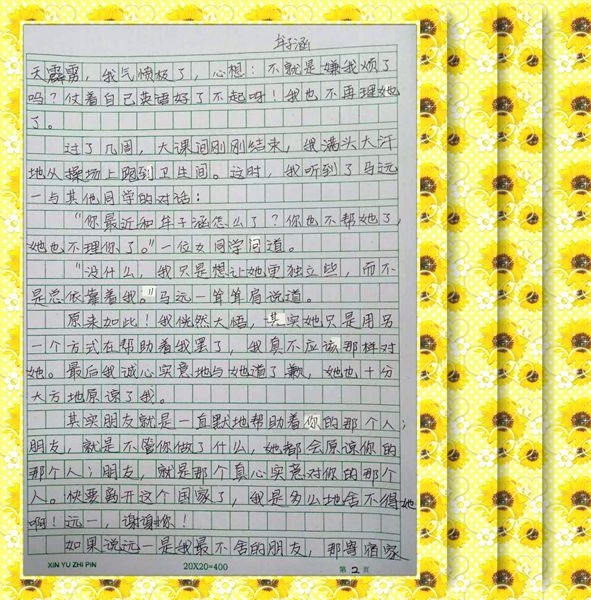 牟子涵
天霹雳，我气愤极了，心想：不就是嫌我烦了
吗？仗着自己英语好了不起呀！我也不再理她
了。
过了几周，大课间刚刚结束，我满头大汗
地从操场上跑到卫生间。这时，我听到了马远
一与其他同学的对话：
“你最近和牟子涵怎么了？你也不帮她了，
她也不理你了。”一位女同学问道。
“没什么，我只是想让她更独立些，而不
是总依靠着我。”马远一耸耸肩说道。
原来如此！我恍然大悟，其实她只是用另
一个方式在帮助着我罢了，我真不应该那样对
她。最后我诚心实意地与她道了歉，她也十分
大方地原谅了我。
其实朋友就是一直默地帮助着你的那个人；
朋友，就是不管你做了什么，她都会原谅你的
那个人；朋友，就是那个真心实意对你的那个
人。快要离开这个国家了，我是多么地舍不得她
啊！远一，谢谢你！
如果说远一是我最不舍的朋友，那寄宿家
XIN YU ZHI PIN 20X20=400 第2頁